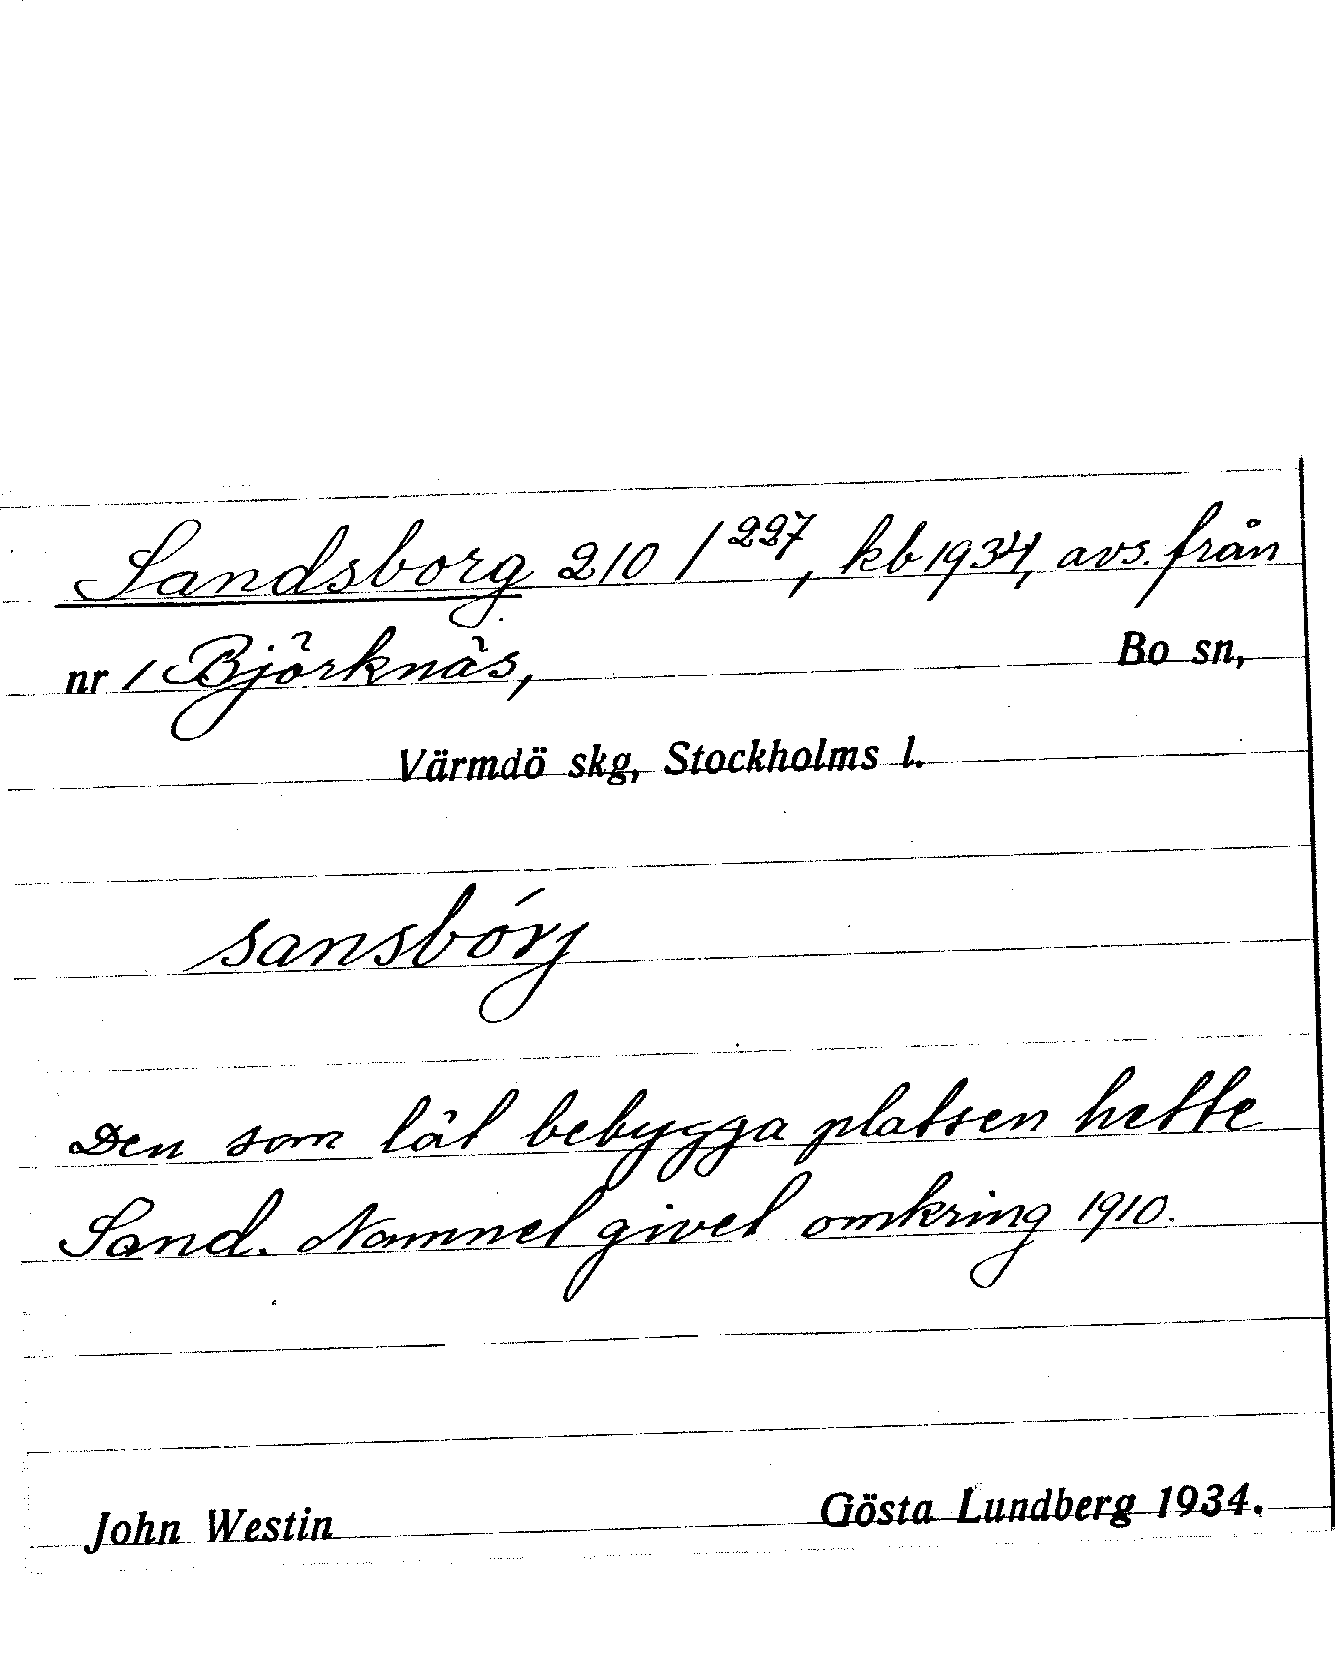 Sandsborg 210 1²²⁷, kb 1934, avs. från
nr 1 Björknäs, Bo sn,
Värmdö skg, Stockholms l.
sansbórj
Den som lät bebygga platsen hette
Sand. Namnet givet omkring 1910.
John Westin Gösta Lundberg 1934.